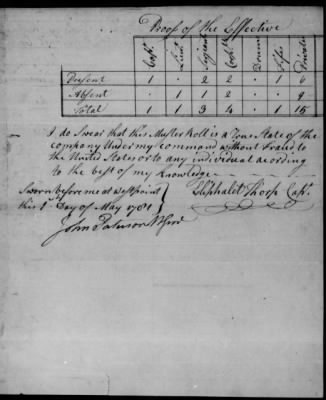 Proof of the Effective
Capt. Lieut Sergeant Corpl Drumr Fifer Private
Present 1 · 2 2 · 1 6
Absent · 1 1 2 · · 9
Total 1 1 3 4 · 1 15
I do Swear that this Muster Roll is a True State of the
Company Under my command without Fraud to
the United States or to any individual acording
to the best of my Knowledge
Sworn before me at West point
this 1st Day of May 1781
Eliphalet Thorp Capt.
John Paterson B Genl